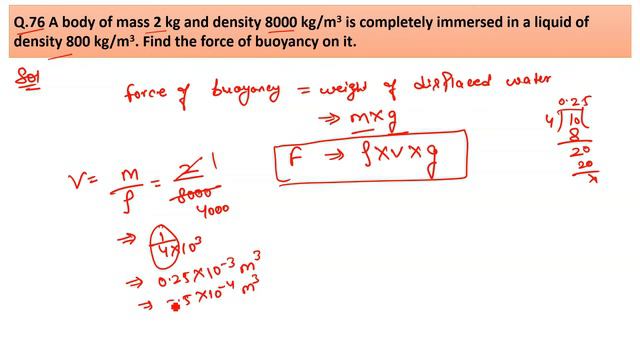 Q.76 A body of mass 2 kg and density 8000 kg/m³ is completely immersed in a liquid of
density 800 kg/m³. Find the force of buoyancy on it.
Sol
force of buoyancy = weight of displaced water
⇒ m×g
F ⇒ ρ×V×g
V = m/ρ = 2/8000 1 4000
⇒ 1/4×10³
⇒ 0.25×10⁻³ m³
⇒ .5×10⁻⁴ m³
0.25
4)10(
8
20
20
x